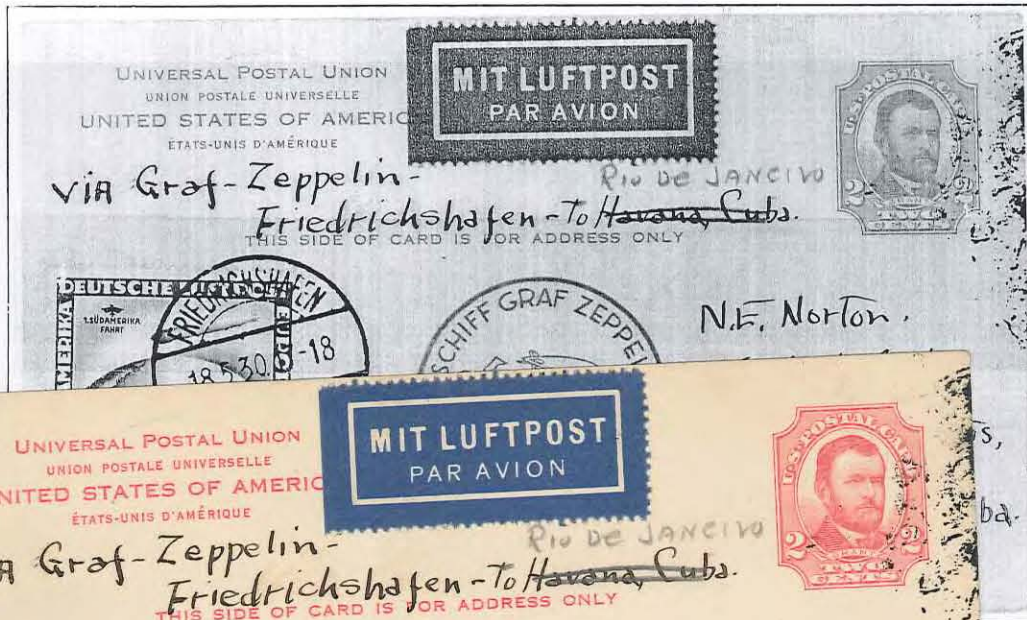 UNIVERSAL POSTAL UNION
UNION POSTALE UNIVERSELLE
UNITED STATES OF AMERIC
ÉTATS-UNIS D'AMÉRIQUE
MIT LUFTPOST
PAR AVION
U.S. POSTAL CARD
2 2
VIA Graf-Zeppelin-
Rio DE JANCIVO
Friedrichshafen-To Havana, Cuba.
THIS SIDE OF CARD IS FOR ADDRESS ONLY
DEUTSCHE LUFTPOST
1. SÜDAMERIKA
FAHRT
AMERIKA
FRIEDRICHSHAFEN
18.5.30. -18
SCHIFF GRAF ZEPPEL
N.E. Norton.
s,
ba.
UNIVERSAL POSTAL UNION
UNION POSTALE UNIVERSELLE
NITED STATES OF AMERIC
ÉTATS-UNIS D'AMÉRIQUE
MIT LUFTPOST
PAR AVION
U.S. POSTAL CARD
2 2
GRANT
TWO
CENTS
A Graf-Zeppelin-
Rio DE JANCIVO
Friedrichshafen-To Havana, Cuba.
THIS SIDE OF CARD IS FOR ADDRESS ONLY